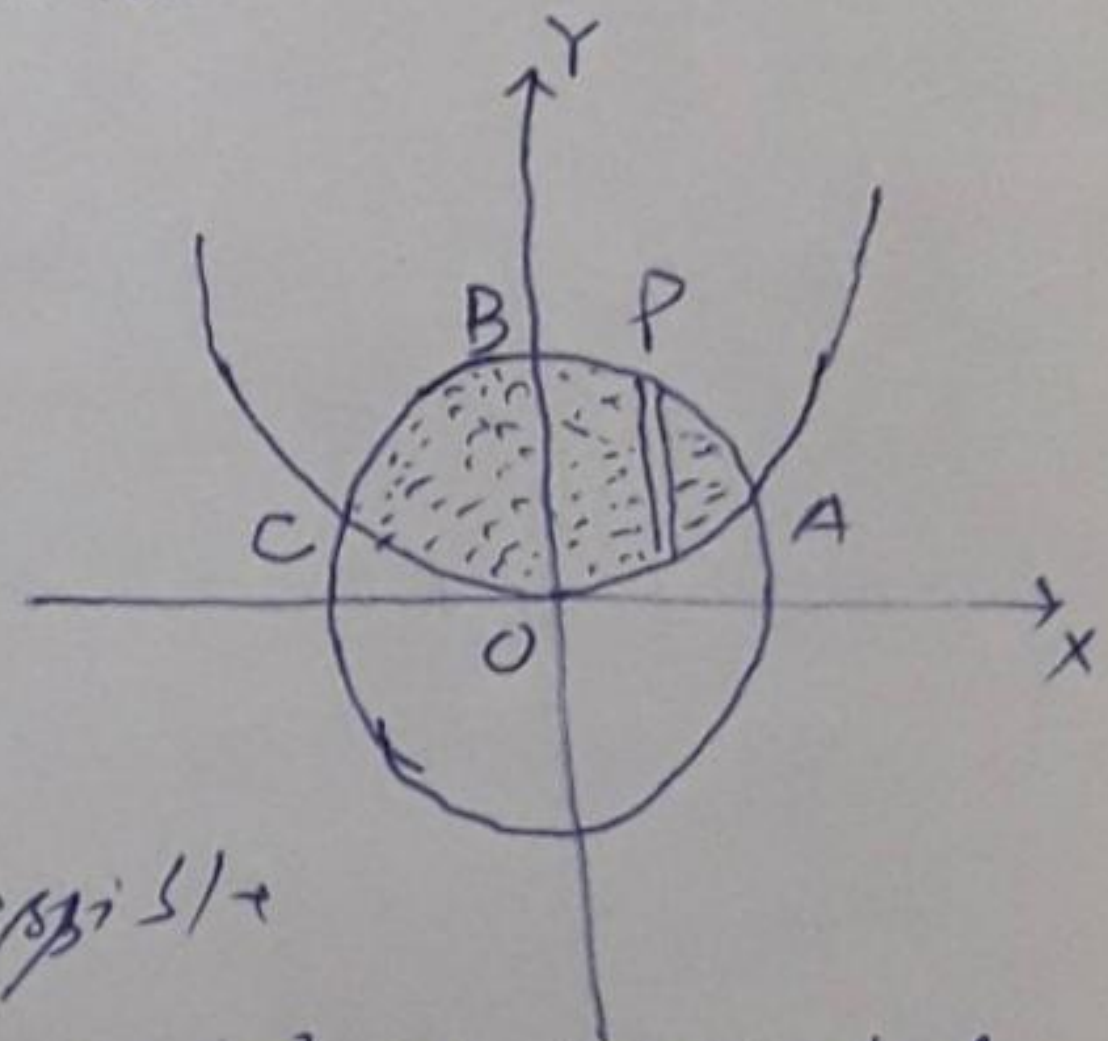 Y
B P
C A
O
X